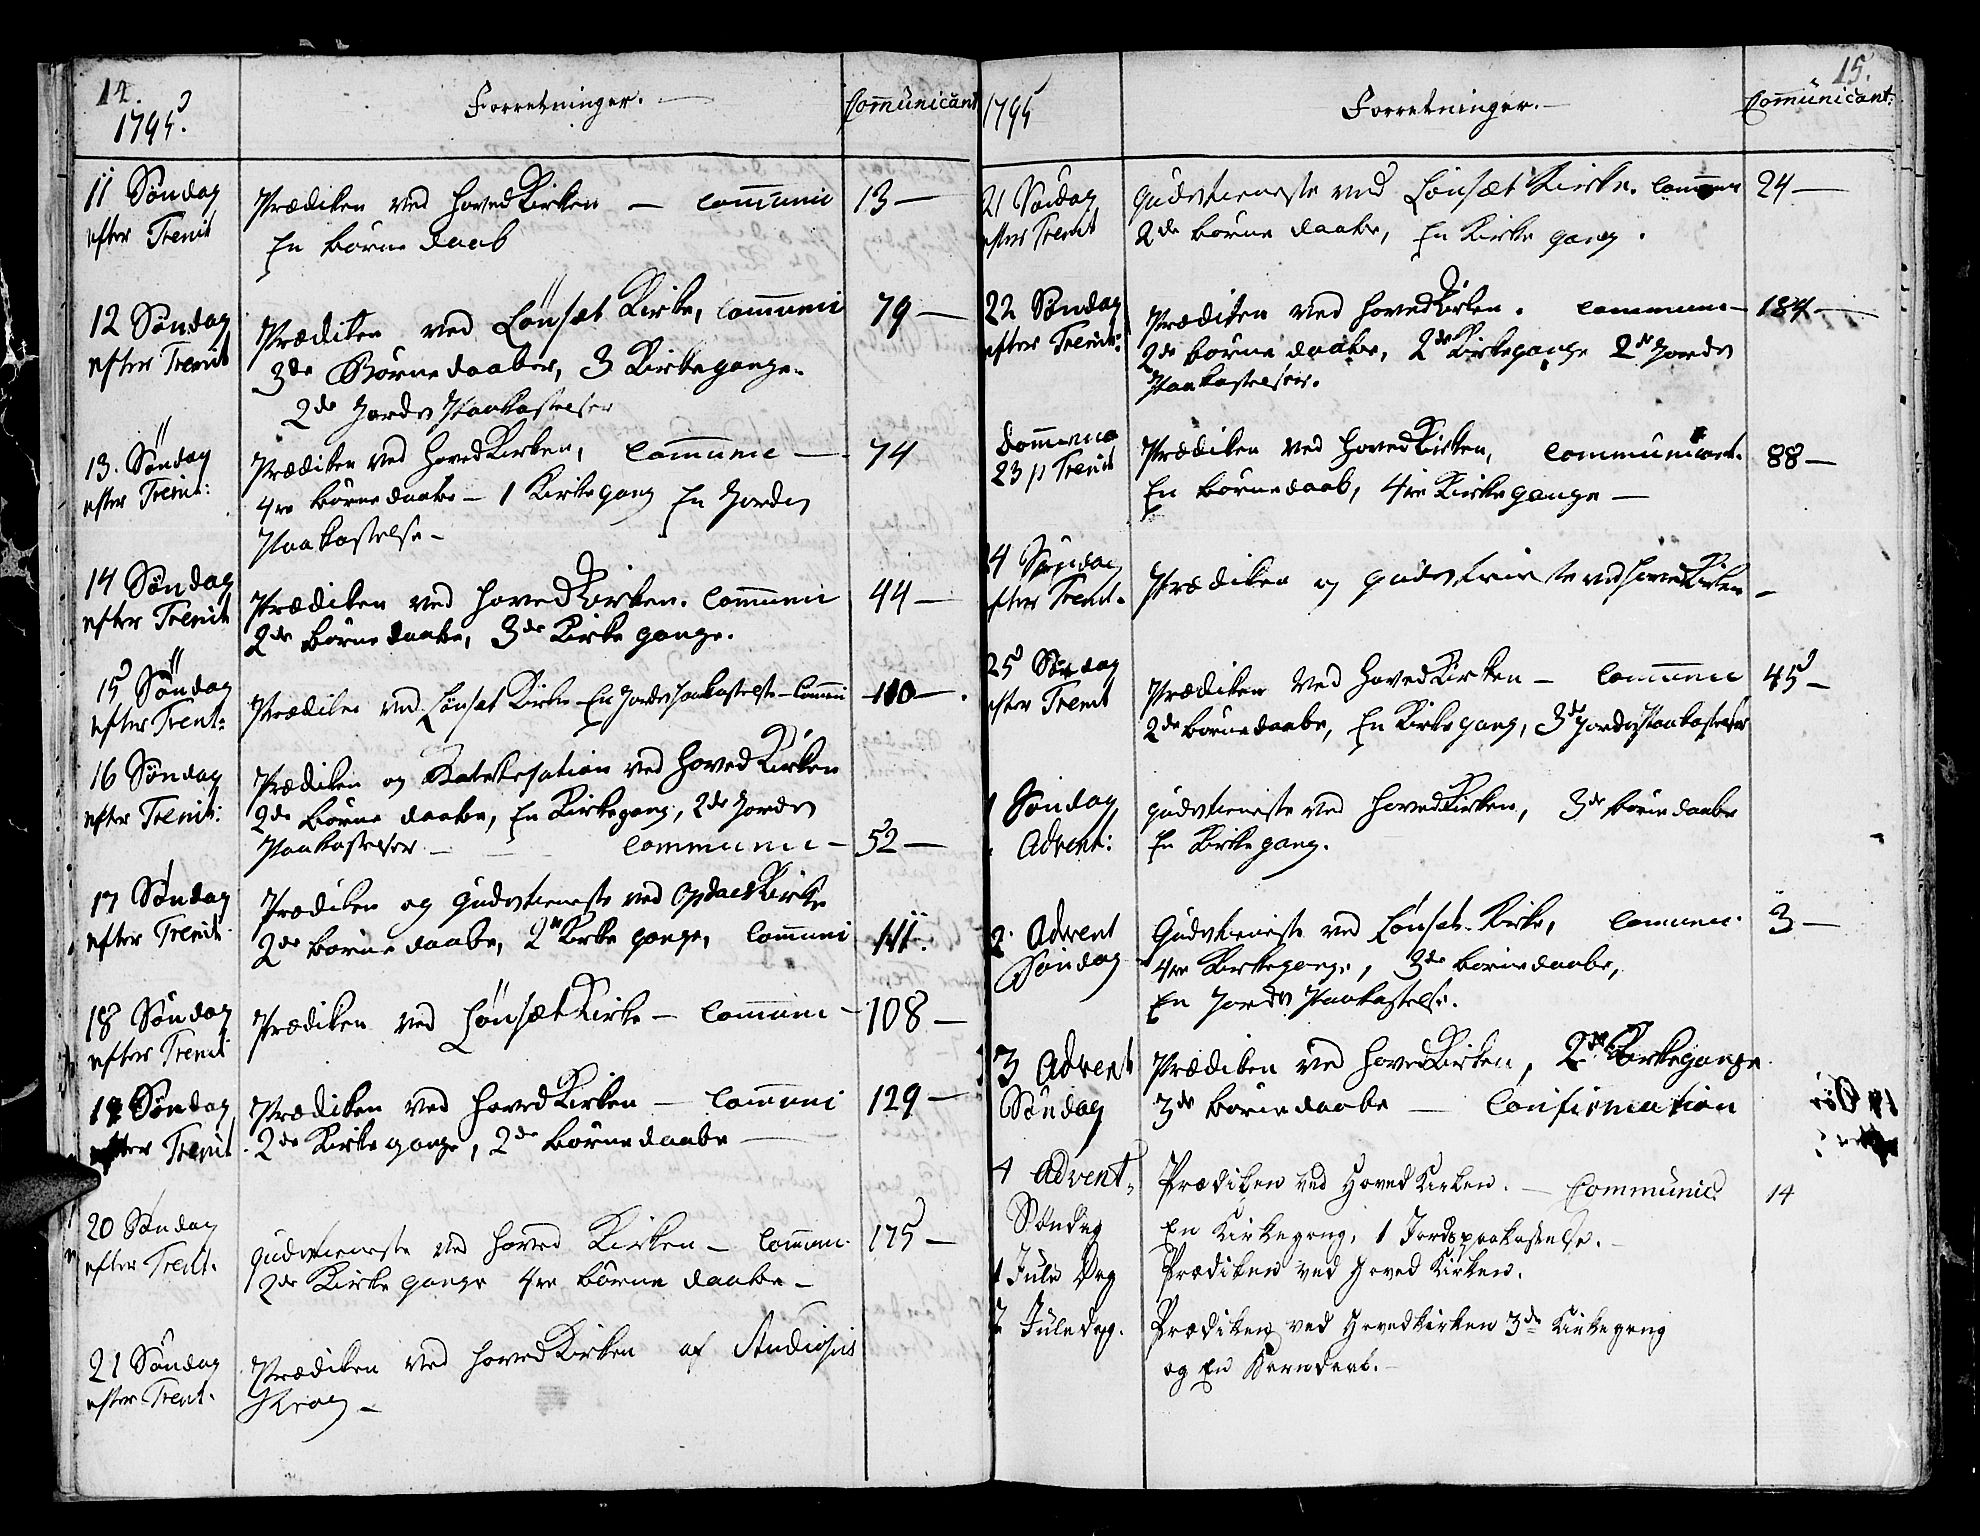 14.
1795.
Forretninger.
Com̄unicant
11 Søndag
efter Trenit
Prædiken ved HovedKirken — Com̄unic 13 —
En børne daab
12 Søndag
efter Trenit
Prædiken ved Lønset Kirke, Com̄uni 79 —
3de Børnedaaber, 3 Kirkegange.
2de Jords Paakastelser
13. Søndag
efter Trenit:
Prædiken ved HovedKirken, Com̄unic — 74
4re børnedaabe — 1 Kirkegang En Jords
Paakastelse —
14 Søndag
efter Trenit
Prædiken ved HovedKirken. Com̄uni 44 —
2de børnedaabe, 3de Kirke gange.
15 Søndag
efter Trent:
Prædiken ved Lønset Kirke En Jords Paakastelse — Com̄uni 110 —
16 Søndag
efter Trenit:
Prædiken og Katekesation ved Hoved Kirken
2de børne daabe, En Kirkegang, 2de Jords
Paakastelser — Communi — 52 —
17 Søndag
efter Trenit
Prædiken og Gudstieneste ved Opdals Kirke
2de børnedaabe, 2de Kirke gange, Com̄uni 141.
18 Søndag
efter Trenit
Prædiken ved Lønsæt Kirke — Com̄uni — 108 —
19 Søndag
efter Trenit
Prædiken ved HovedKirken — Com̄uni 129 —
2de Kirkegange, 2de børnedaabe —
20 Søndag
efter Trent.
Gudstieneste ved Hoved Kirken — Com̄uni. 175 —
2de Kirke gange 4re børne daabe —
21 Søndag
efter Trent.
Prædiken ved HovedKirken af Studiosus
Krog —
15.
1795
Forretninger. —
Com̄unicant:
21 Søndag
efter Trent
Gudstieneste ved Lønsæt Kirke. Com̄un 24 —
2de børne daabe, En Kirke gang.
22 Søndag
efter Trenit:
Prædiken ved HovedKirken. Commune — 184 —
2de børne daabe, 2de Kirkegange 2de Jords
Paakastelser.
Dom̄enica
23 p Trenit
Prædiken ved HovedKirken, Communicant. 88 —
En børnedaab, 4re Kirkegange —
4 Søndag
efter Trenit.
Prædiken og Gudstieneste ved HovedKirken —
25 Søndag
efter Trenit
Prædiken ved HovedKirken — Com̄unic 45 —
2de børnedaabe, En Kirkegang, 3de Jords Paakastelser
1 Søndag
Advent:
Gudstieneste ved HovedKirken, 3de børnedaabe
En Kirkegang.
2. Advent
Søndag
Gudstieneste ved Lønset Kirke, Comuni. 3 —
4re Kirkegange, 3de børnedaabe,
En Jords Paakastelse.
3 Advent
Søndag
Prædiken ved HovedKirken, 2de Kirkegange.
3de børnedaabe — Confirmation
4 Advent.
Søndag
Prædiken ved Hoved Kirken. — Communic. 14
En Kirkegang, 1 Jordspaakastelse. —
1 Jule Dag
Prædiken ved Hoved Kirken.
2 Juledag.
Prædiken ved Hovedkirken 3de Kirkegang
og En Barnedaab. —